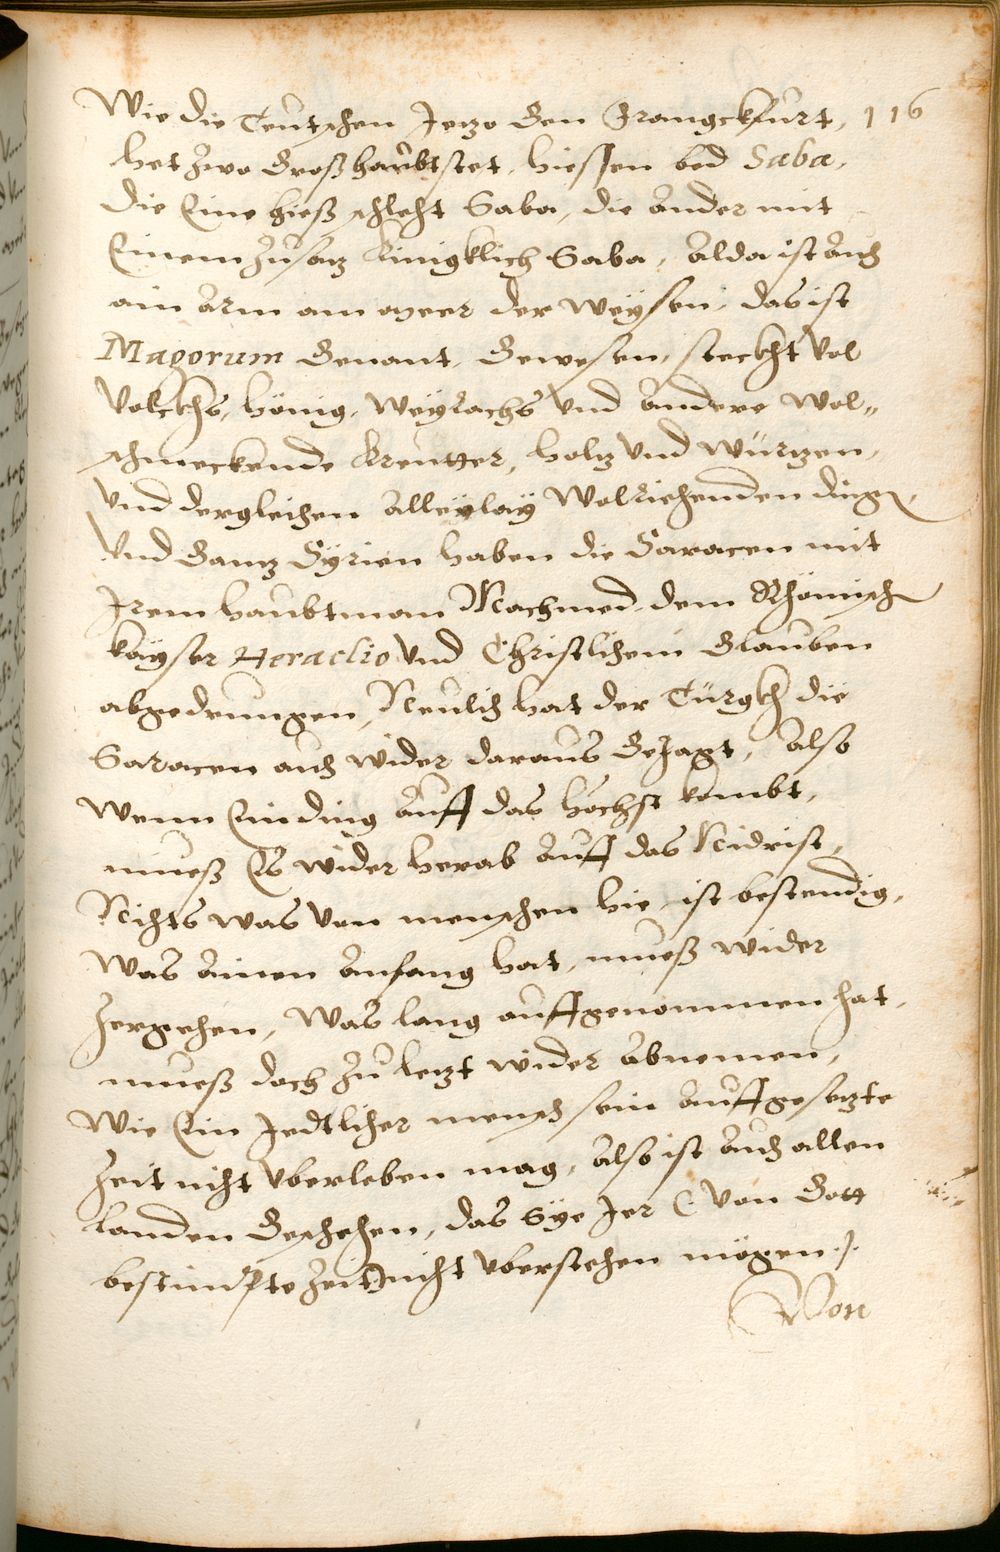 Wie die Teutschen Jetzo Gen Franngckfurt, 116
het zwo Groß haubtstet, hiessen bed Saba,
die Eine hieß schlecht Saba, die Ander mit
Einem zusatz Künigklich Saba, Alda ist Auch
ain Arm am meer der weysen, das ist
Magorum Genant, Gewesen, steckht vol
volckhs, hönig, weyrachs vnd Andere wol„
schmeckende Kreutter, holtz vnd würtzen,
vnd dergleichen Allerlay Wolriechenden dingen,
Vnd Gantz Syrien haben die Saracen mit
Jrem haubtman Machmed, dem Rhömischen
kayser Heraclio vnd Christlichem Glauben
abgedrungen, Neulich hat der Türgkh die
Saracen auch wider daraus Gejagt, Also
wenn Ein ding Auff das höchst kombt,
mueß Es wider herab Auff das Nidrist,
Nichts was von menschen hie, ist bestendig,
Was Ainen Anfang hat, mueß wider
zergehen, Was lang auffgenommen hat,
mueß doch zu letzt wider Abnemen,
Wie Ein Jedtlicher mensch sein Auffgesetzte
Zeit nicht vberleben mag, Also ist Auch allen
Landen Geschehen, das Sye Jer (von Gott
bestimpte Zeit) nicht vberstehen mögen ./.
Von